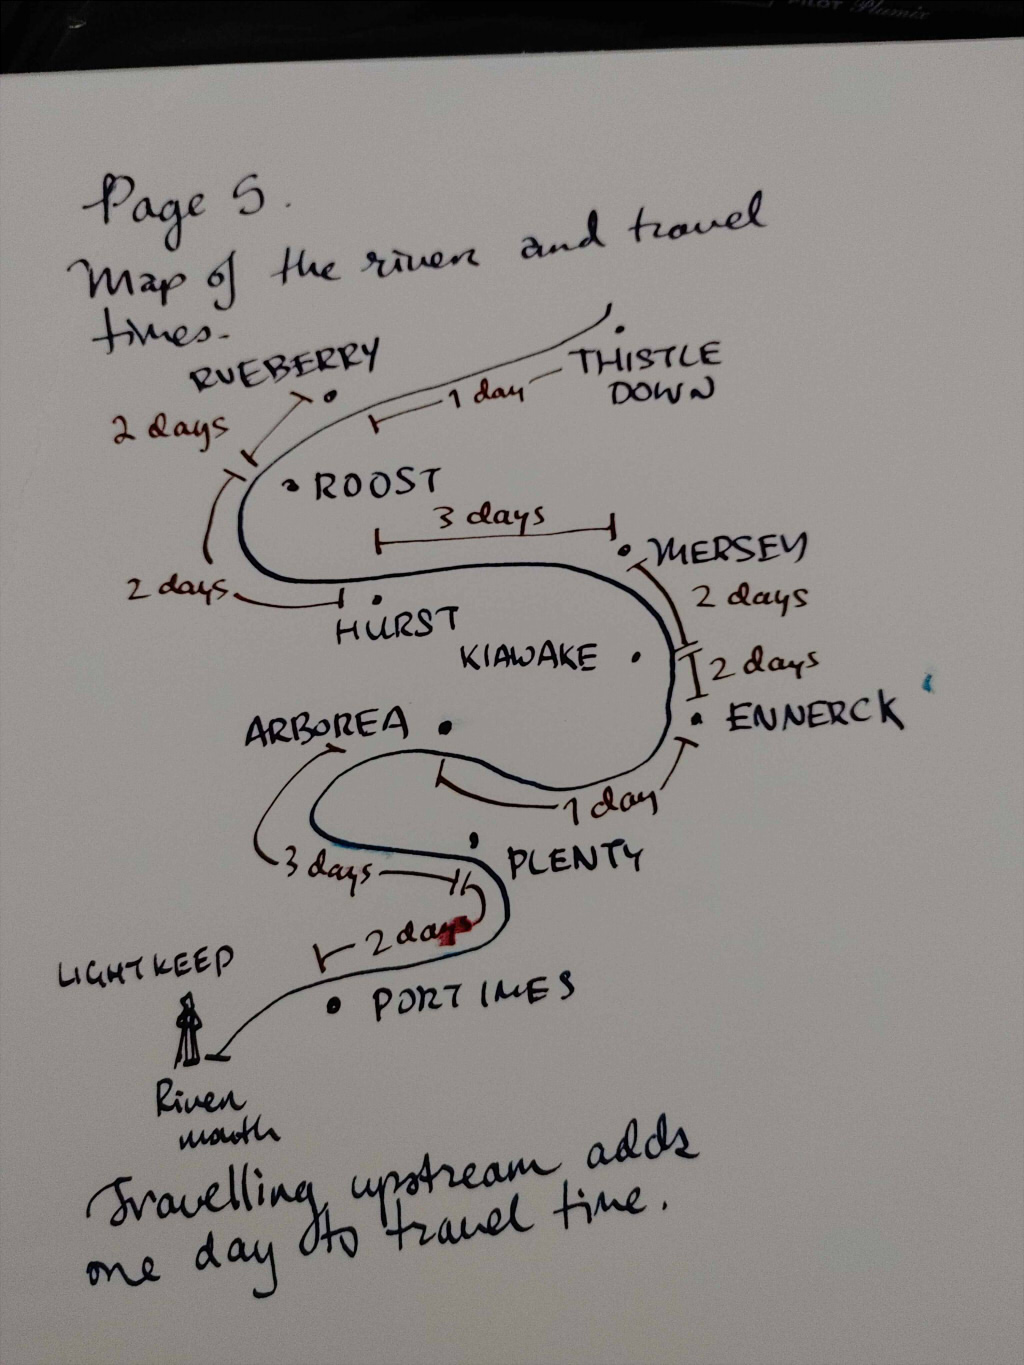 PILOT Plumix
Page 5.
Map of the river and travel
times.
RUEBERRY
THISTLE
DOWN
1 day
2 days
ROOST
3 days
MERSEY
2 days
2 days
HURST
KIAWAKE
2 days
ENNERCK
ARBOREA
1 day
PLENTY
3 days
2 days
LIGHTKEEP
PORT IMES
River
mouth
Travelling upstream adds
one day to travel time.